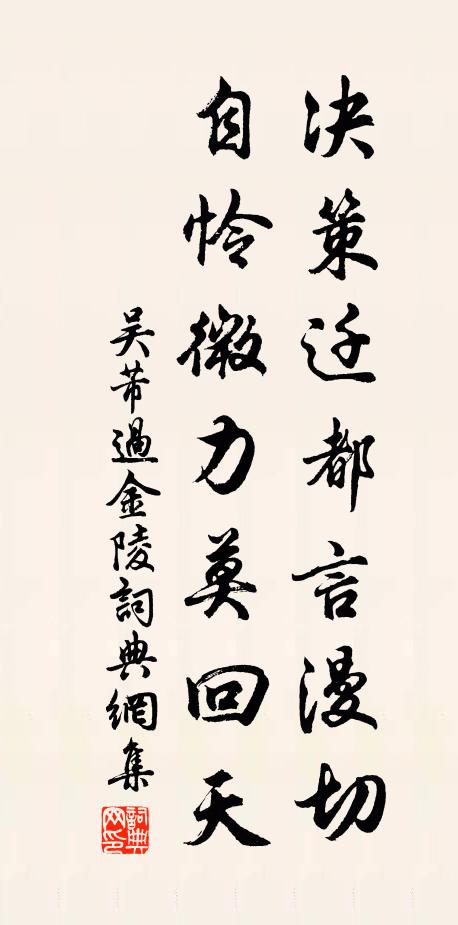 决策迁都言漫切
自怜微力莫回天
吴芾過金陵詞典網集
詞典網印